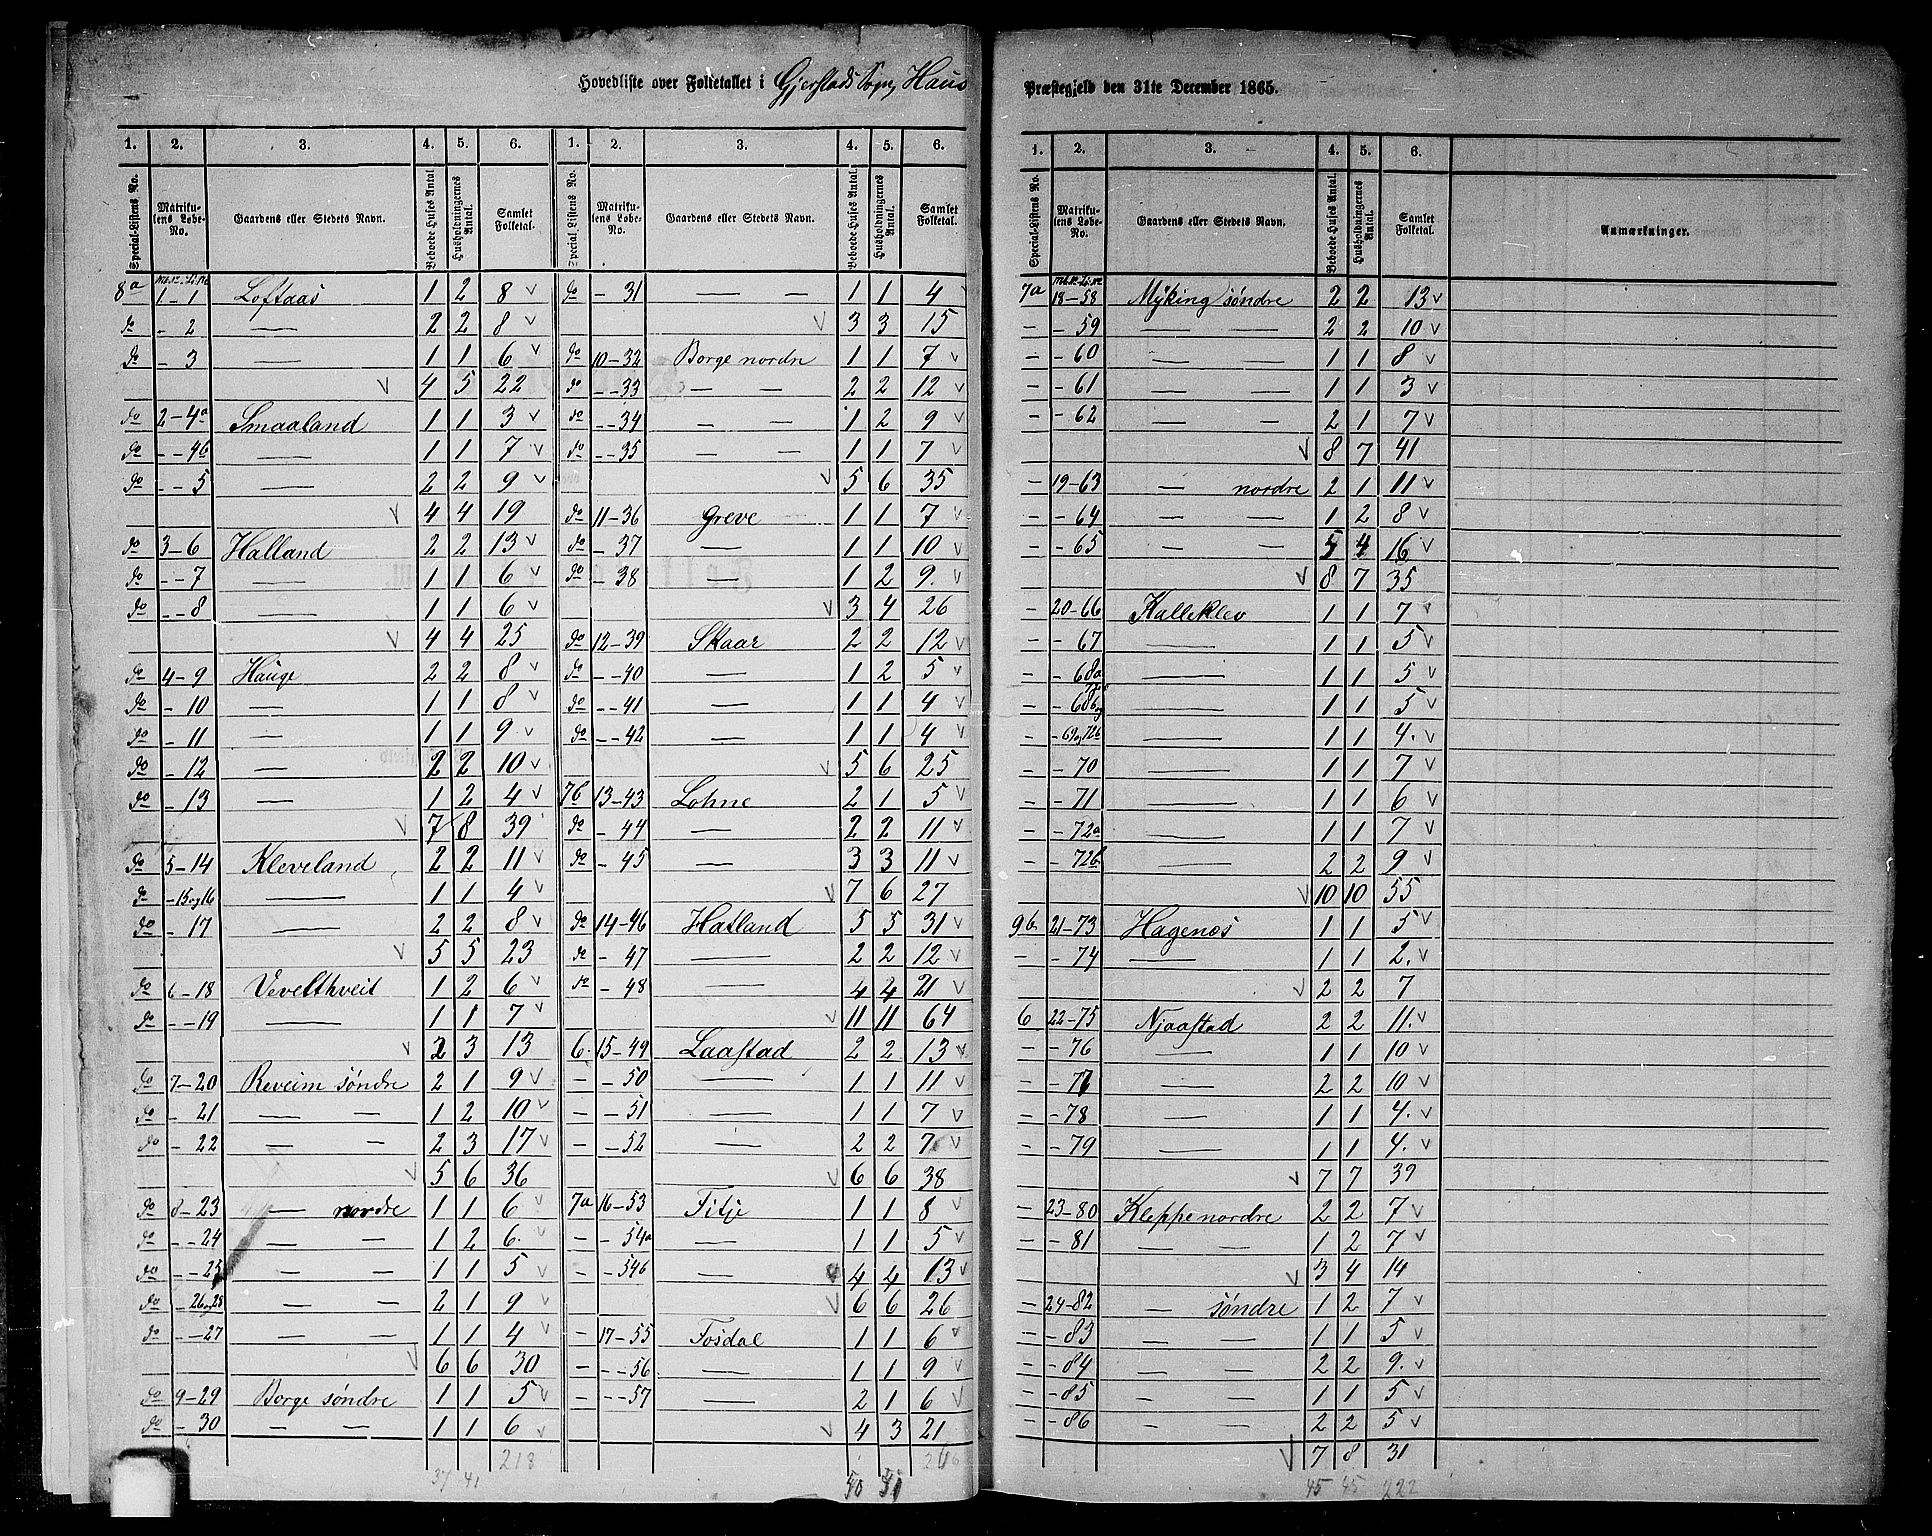 Hovedliste over Folketallet i Gjerstads Sogn, Haus Præstegjeld den 31te December 1865.
1. 2. 3. 4. 5. 6. 1. 2. 3. 4. 5. 6.
Special-Listens No. Matrikulens Løbe-No. Gaardens eller Stedets Navn. Beboede Huses Antal Husholdningernes Antal. Samlet Folketal. Special-Listens No. Matrikulens Løbe-No. Gaardens eller Stedets Navn. Beboede Huses Antal. Husholdningernes Antal. Samlet Folketal.
8a 1-1 Loftaas 1 2 8 v
do - 2 — 2 2 8 v
do - 3 — 1 1 6 v
v 4 5 22
do 2-4a Smaaland 1 1 3 v
do --4b — 1 1 7 v
do --5 — 2 2 9 v
v 4 4 19
do 3-6 Halland 2 2 13 v
do --7 — 1 1 6 v
do --8 — 1 1 6 v
v 4 4 25
do 4-9 Hauge 2 2 8 v
do - 10 — 1 1 8 v
do - 11 — 1 1 9 v
do - 12 — 2 2 10 v
do - 13 — 1 2 4 v
v 7 8 39
do 5-14 Kleveland 2 2 11 v
do -15og16 — 1 1 4 v
do - 17 — 2 2 8 v
v 5 5 23
do 6-18 Vevelthveit 1 2 6 v
do --19 — 1 1 7 v
v 2 3 13
do 7-20 Reveim søndre 2 1 9 v
do - 21 — — 1 2 10 v
do - 22 — — 2 3 17 v
v 5 6 36
do 8-23 — nordre 1 1 6 v
do --24 — — 1 2 6. v
do --25 — — 1 1 5 v
do --26og28 — — 2 1 9 v
do --27 — — 1 1 4 v
v 6 6 30
do 9-29 Borge søndre 1 1 5 v
do - 30 — — 1 1 6 v
37 41 218
do - 31 — — 1 1 4 v
v 3 3 15
do 10-32 Borge nordre 1 1 7 v
do --33 — — 2 2 12 v
do --34 — — 1 2 9 v
do --35 — — 1 1 7 v
v 5 6 35
do 11-36 Greve 1 1 7 v
do - 37 — 1 1 10 v
do - 38 — 1 2 9. v
v 3 4 26
do 12-39 Skaar 2 2 12 v
do --40 — 1 2 5 v
do --41 — 1 1 4 v
do --42 — 1 1 4 v
v 5 6 25
7b 13-43 Lohne 2 1 5 v
do - 44 — 2 2 11 v
do - 45 — 3 3 11 v
v 7 6 27
do 14-46 Hatland 5 5 31 v
do - 47 — 2 2 12 v
do - 48 — 4 4 21 v
v 11 11 64
6. 15-49 Laastad 2 2 13 v
— --50 — 1 1 11 v
— --51 — 1 1 7 v
— --52 — 2 2 7 v
v 6 6 38
7a 16-53 Titje 1 1 8 v
— --54a — 1 1 5 v
— --54b — 4 4 13 v
v 6 6 26
— 17-55 Fosdal 1 1 6 v
— --56 — 1 1 9 v
— --57 — 2 1 6 v
v 4 3 21
1. 2. 3. 4. 5. 6.
Special-Listens No. Matrikulens Løbe-No. Gaardens eller Stedets Navn. Beboede Huses Antal. Husholdningernes Antal. Samlet Folketal. Anmærkninger.
7a 18-58 Myking søndre 2 2 13 v
— - 59 — — 2 2 10 v
— - 60 — — 1 1 8 v
— - 61 — — 1 1 3 v
— - 62 — — 2 1 7 v
v 8 7 41
— 19-63 — nordre 2 1 11 v
— - 64 — — 1 2 8 v
— - 65 — — 5 4 16 v
v 8 7 35
— 20-66 Kalleklev 1 1 7 v
— - 67 — 1 1 5 v
— - 68a — 1 1 5 v
— - 68b og — 1 1 5 v
— -69og72b — 1 1 4. v
— - 70 — 1 1 7 v
— - 71 — 1 1 6 v
— - 72a — 1 1 7 v
— - 72b — 2 2 9 v
v 10 10 55
9b 21-73 Hagenæs 1 1 5 v
— - 74 — 1 1 2. v
v 2 2 7
6 22-75 Njaastad 2 2 11. v
— - 76 — 1 1 10 v
— - 77 — 2 2 10 v
— - 78 — 1 1 4. v
— - 79 — 1 1 4. v
v 7 7 39
— 23-80 Kleppe nordre 2 2 7 v
— - 81 — — 1 2 7 v
v 3 4 14
— 24-82 — søndre 1 2 7 v
— - 83 — — 1 1 5 v
— - 84 — — 2 2 9. v
— - 85 — — 1 1 5 v
— - 86 — — 2 2 5 v
v 7 8 31
45 45 222